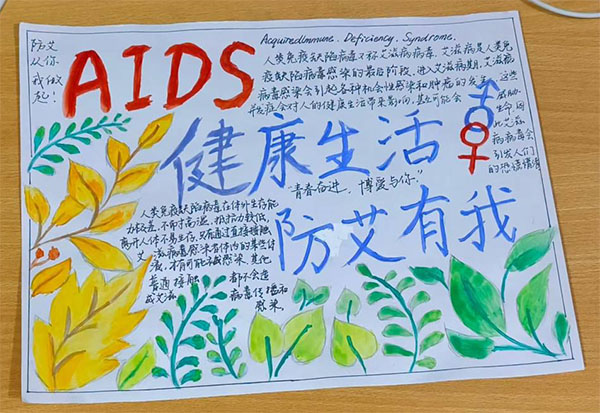 防艾
从你
我做
起！
AIDS
AcquiredImmune. Deficiency. Syndrome.
人类免疫缺陷病毒又称艾滋病病毒，艾滋病是人类免
疫缺陷病毒感染的最后阶段，进入艾滋病期，艾滋病
病毒感染会引起各种机会性感染和肿瘤的发生
并发症会对人的健康生活带来影响，甚至可能会
这些
威胁
生命，因
此艾滋
病病毒会
引发人们
的恐慌情绪
健康生活
"青春奋进，博爱与你。"
防艾有我
人类免疫缺陷病毒在体外生存能
力较差，不耐高温，抵抗力较低，
离开人体不易生存，只有通过直接接触
艾滋病毒感染者体内的某些体
液，才有可能被感染，其他
普通接触都不会造
成艾滋病毒传播和
感染。